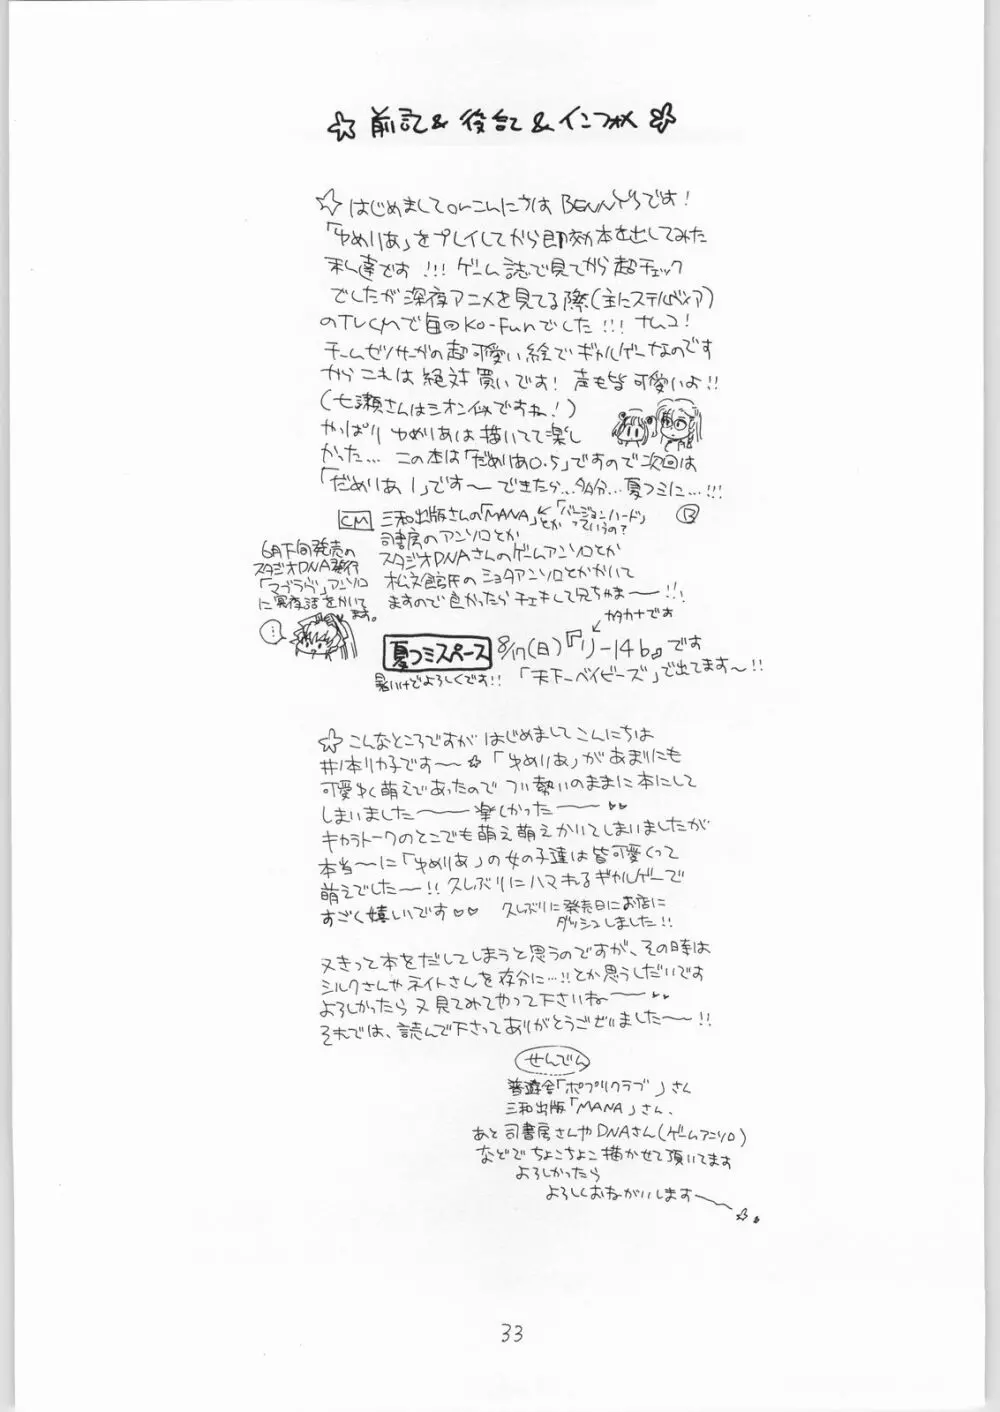 ☆前記&後記&インフォメ☆
☆はじめましてorこんにちは BENNY'Sです!
「ゆめりあ」をプレイしてから即効本を出してみた
私達です!!!ゲーム誌で見てから超チェック
でしたが深夜アニメを見てる際(主にステルヴィア)
のTVCMで毎回Ko-Funでした!!!ナムコ!
チームゼノサーガの超可愛い絵でギャルゲーなのです
からこれは絶対買いです!声も皆可愛いよ!!
(七瀬さんはシオン似ですね!)
やっぱりゆめりあは描いてて楽し
かった…この本は「だめりあ0.5」ですので次回は
「だめりあ1」です〜できたら…多分…夏コミに…!!!
CM 三和出版さんの「MANA」とか ←「バージョンハード」っていうの? B
司書房のアンソロとか
スタジオDNAさんのゲームアンソロとか
松文館氏のショタアンソロとかかいて
ますので良かったらチェキして兄ちゃま〜!!!
6月下旬発売の
スタジオDNA発行
「マブラヴ」アンソロ
に冥夜話をかいて
ます。
…
カタカナです
夏コミスペース 8/17(日)『リ-14b』です
暑いけどよろしくです!! 「天下一ベイビーズ」で出てます〜!!
☆こんなところですがはじめましてこんにちは
井ノ本リカ子です〜☆「ゆめりあ」があまりにも
可愛ゆく萌えであったのでつい勢いのままに本にして
しまいました〜楽しかった〜♥♥
キャラトークのとこでも萌え萌えかいてしまいましたが
本当〜に「ゆめりあ」の女の子達は皆可愛くって
萌えでした〜!!久しぶりにハマれるギャルゲーで
すごく嬉しいです♥♥ 久しぶりに発売日にお店に
ダッシュしました!!
又きって本をだしてしまうと思うのですが、その時は
シルクさんやネイトさんを存分に…!!とか思うしだいです
よろしかったら又見てみてやって下さいね〜♥♥
それでは、読んで下さってありがとうございました〜!!
せんでん
普遊舎「ポプリクラブ」さん
三和出版「MANA」さん、
あと司書房さんやDNAさん(ゲームアンソロ)
などでちょこちょこ描かせて頂いてます
よろしかったら
よろしくおねがいします〜☆。
33